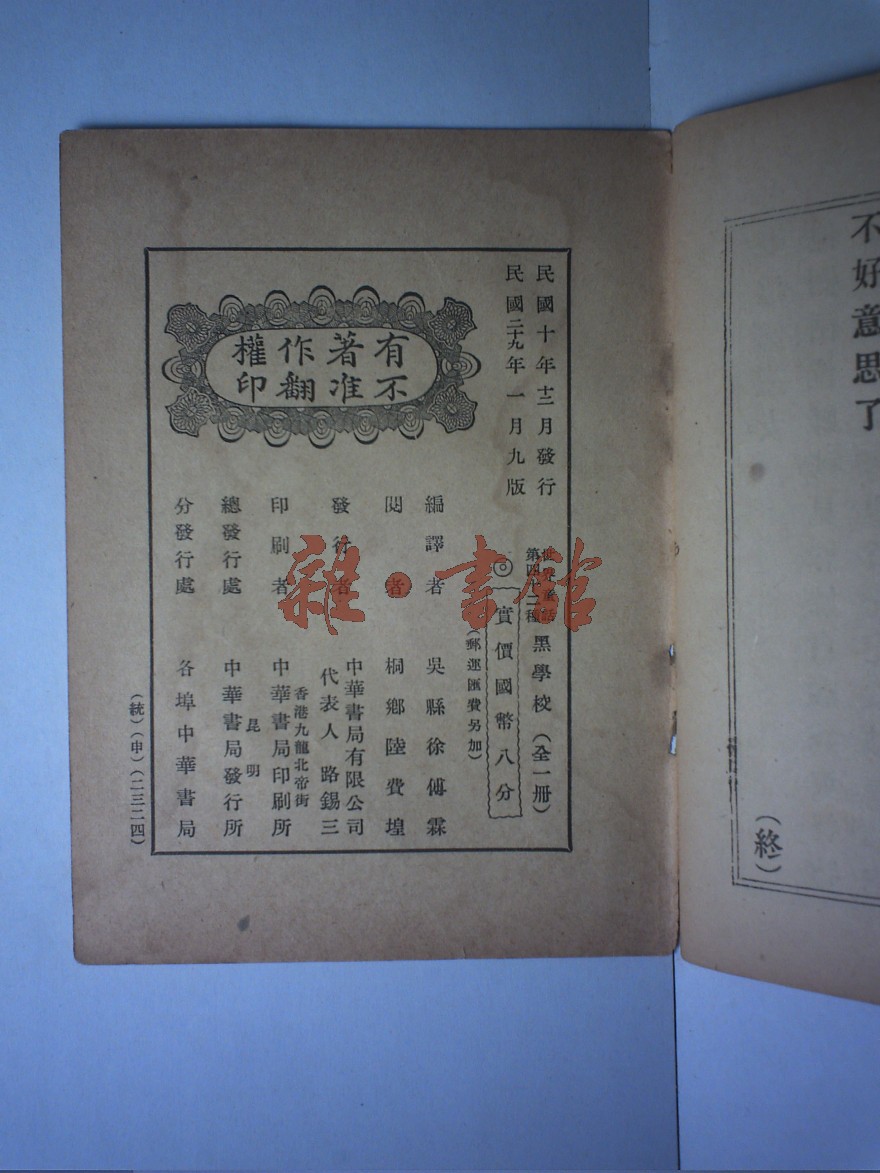 不好意思了
(終)
民國十年十二月發行
民國二十九年一月九版
有著作權
不准翻印
世界童話
第四十二種
黑學校(全一冊)
◎實價國幣八分
(郵運匯費另加)
編譯者 吳縣徐傅霖
閱者 桐鄉陸費堭
發行者 中華書局有限公司
代表人 路錫三
印刷者 香港九龍北帝街
中華書局印刷所
總發行處 昆明
中華書局發行所
分發行處 各埠中華書局
(統)(申)(二三二四)
雜·書館